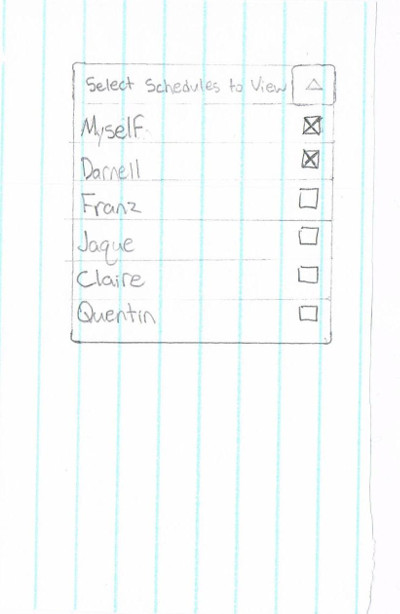 Select Schedules to View
Myself
Darnell
Franz
Jaque
Claire
Quentin